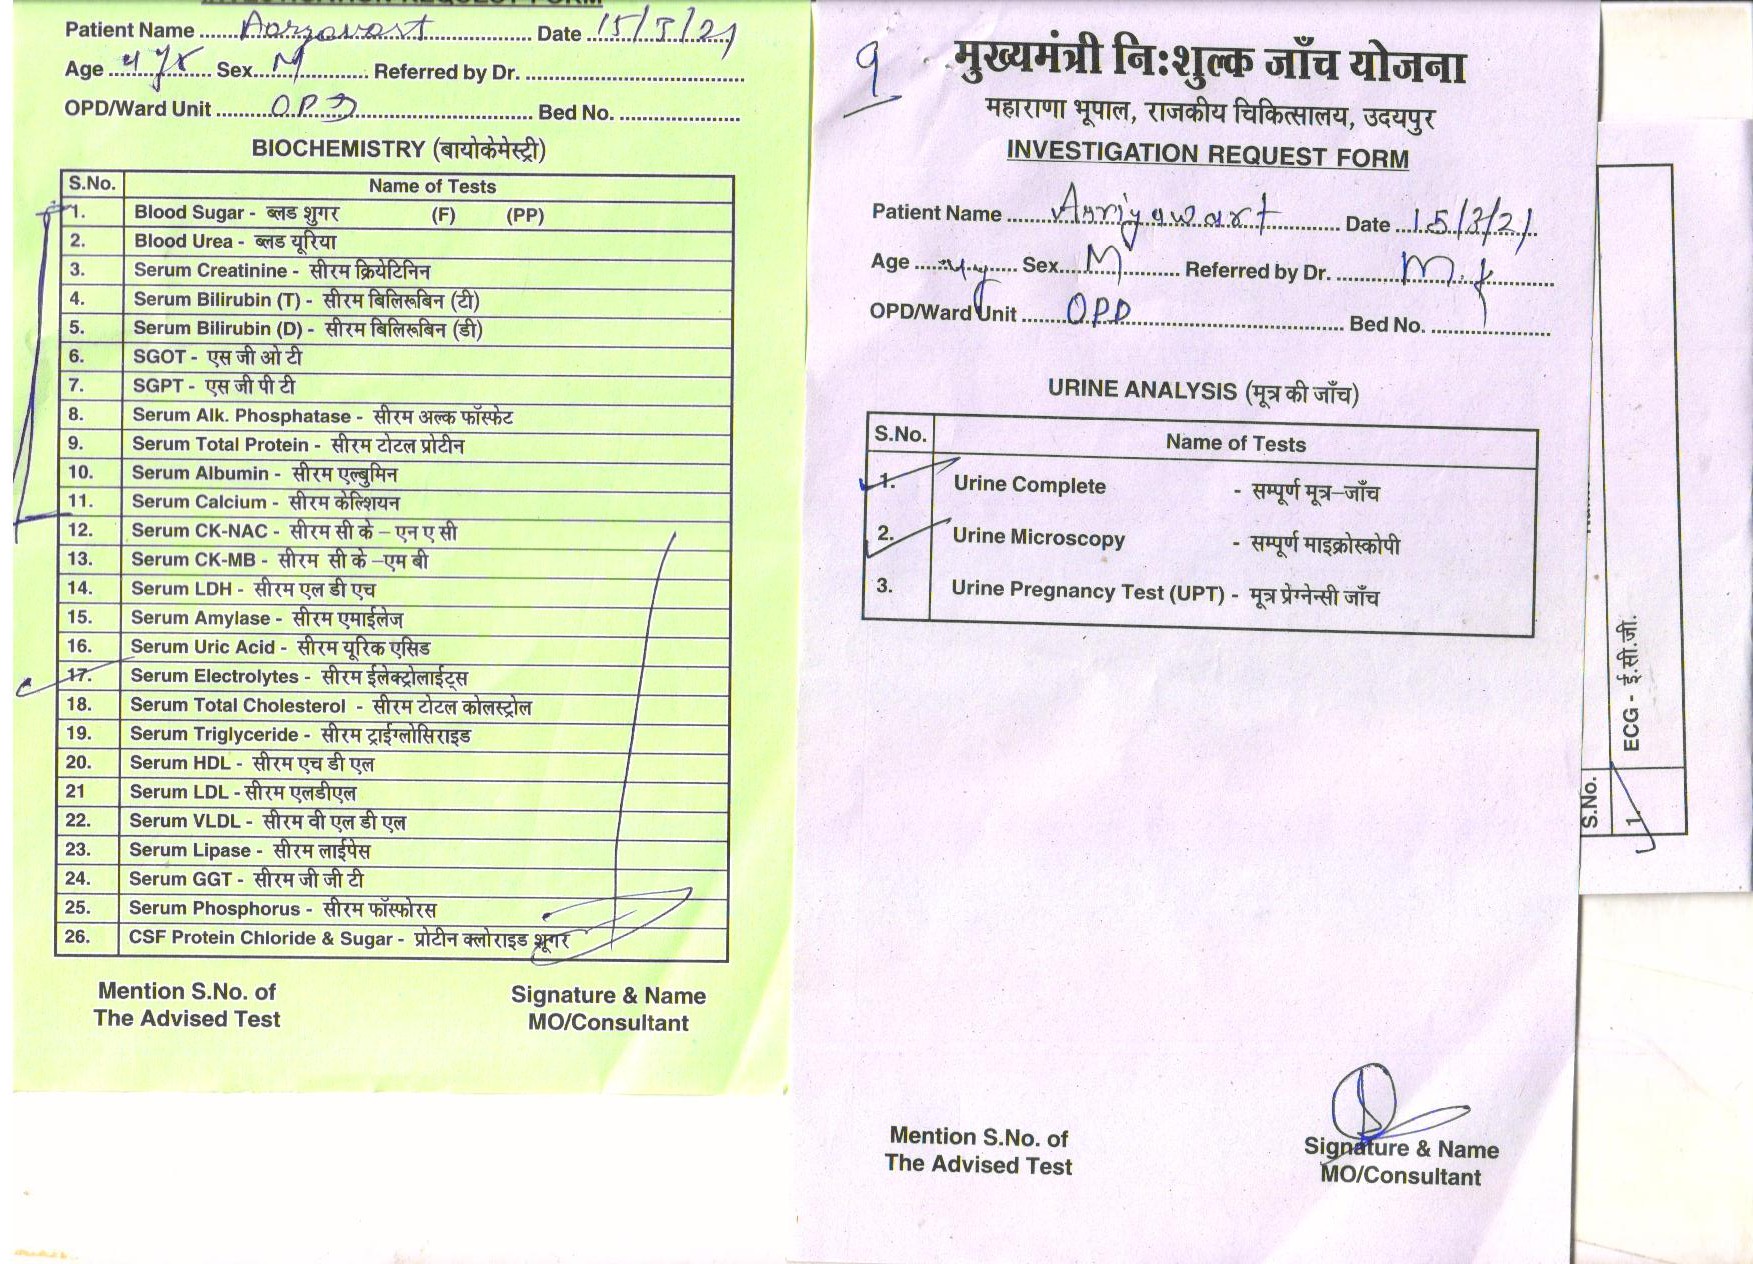 INVESTIGATION REQUEST FORM
Patient Name Date 15/3/21
Age 4 yr Sex M Referred by Dr.
OPD/Ward Unit OPD Bed No.
BIOCHEMISTRY (बायोकेमेस्ट्री)
S.No. Name of Tests
1. Blood Sugar - ब्लड शुगर (F) (PP)
2. Blood Urea - ब्लड यूरिया
3. Serum Creatinine - सीरम क्रियेटिनिन
4. Serum Bilirubin (T) - सीरम बिलिरूबिन (टी)
5. Serum Bilirubin (D) - सीरम बिलिरूबिन (डी)
6. SGOT - एस जी ओ टी
7. SGPT - एस जी पी टी
8. Serum Alk. Phosphatase - सीरम अल्क फॉस्फेट
9. Serum Total Protein - सीरम टोटल प्रोटीन
10. Serum Albumin - सीरम एल्बुमिन
11. Serum Calcium - सीरम केल्शियन
12. Serum CK-NAC - सीरम सी के – एन ए सी
13. Serum CK-MB - सीरम सी के –एम बी
14. Serum LDH - सीरम एल डी एच
15. Serum Amylase - सीरम एमाईलेज
16. Serum Uric Acid - सीरम यूरिक एसिड
17. Serum Electrolytes - सीरम ईलेक्ट्रोलाईट्स
18. Serum Total Cholesterol - सीरम टोटल कोलस्ट्रोल
19. Serum Triglyceride - सीरम ट्राईग्लोसिराइड
20. Serum HDL - सीरम एच डी एल
21 Serum LDL - सीरम एलडीएल
22. Serum VLDL - सीरम वी एल डी एल
23. Serum Lipase - सीरम लाईपेस
24. Serum GGT - सीरम जी जी टी
25. Serum Phosphorus - सीरम फॉस्फोरस
26. CSF Protein Chloride & Sugar - प्रोटीन क्लोराइड शूगर
Mention S.No. of Signature & Name
The Advised Test MO/Consultant
9
मुख्यमंत्री नि:शुल्क जाँच योजना
महाराणा भूपाल, राजकीय चिकित्सालय, उदयपुर
INVESTIGATION REQUEST FORM
Patient Name Aariyawart Date 15/3/21
Age 4y Sex M Referred by Dr.
OPD/Ward Unit OPD Bed No.
URINE ANALYSIS (मूत्र की जाँच)
S.No. Name of Tests
1. Urine Complete - सम्पूर्ण मूत्र–जाँच
2. Urine Microscopy - सम्पूर्ण माइक्रोस्कोपी
3. Urine Pregnancy Test (UPT) - मूत्र प्रेग्नेन्सी जाँच
Mention S.No. of Signature & Name
The Advised Test MO/Consultant
S.No.
1. ECG - ई.सी.जी.